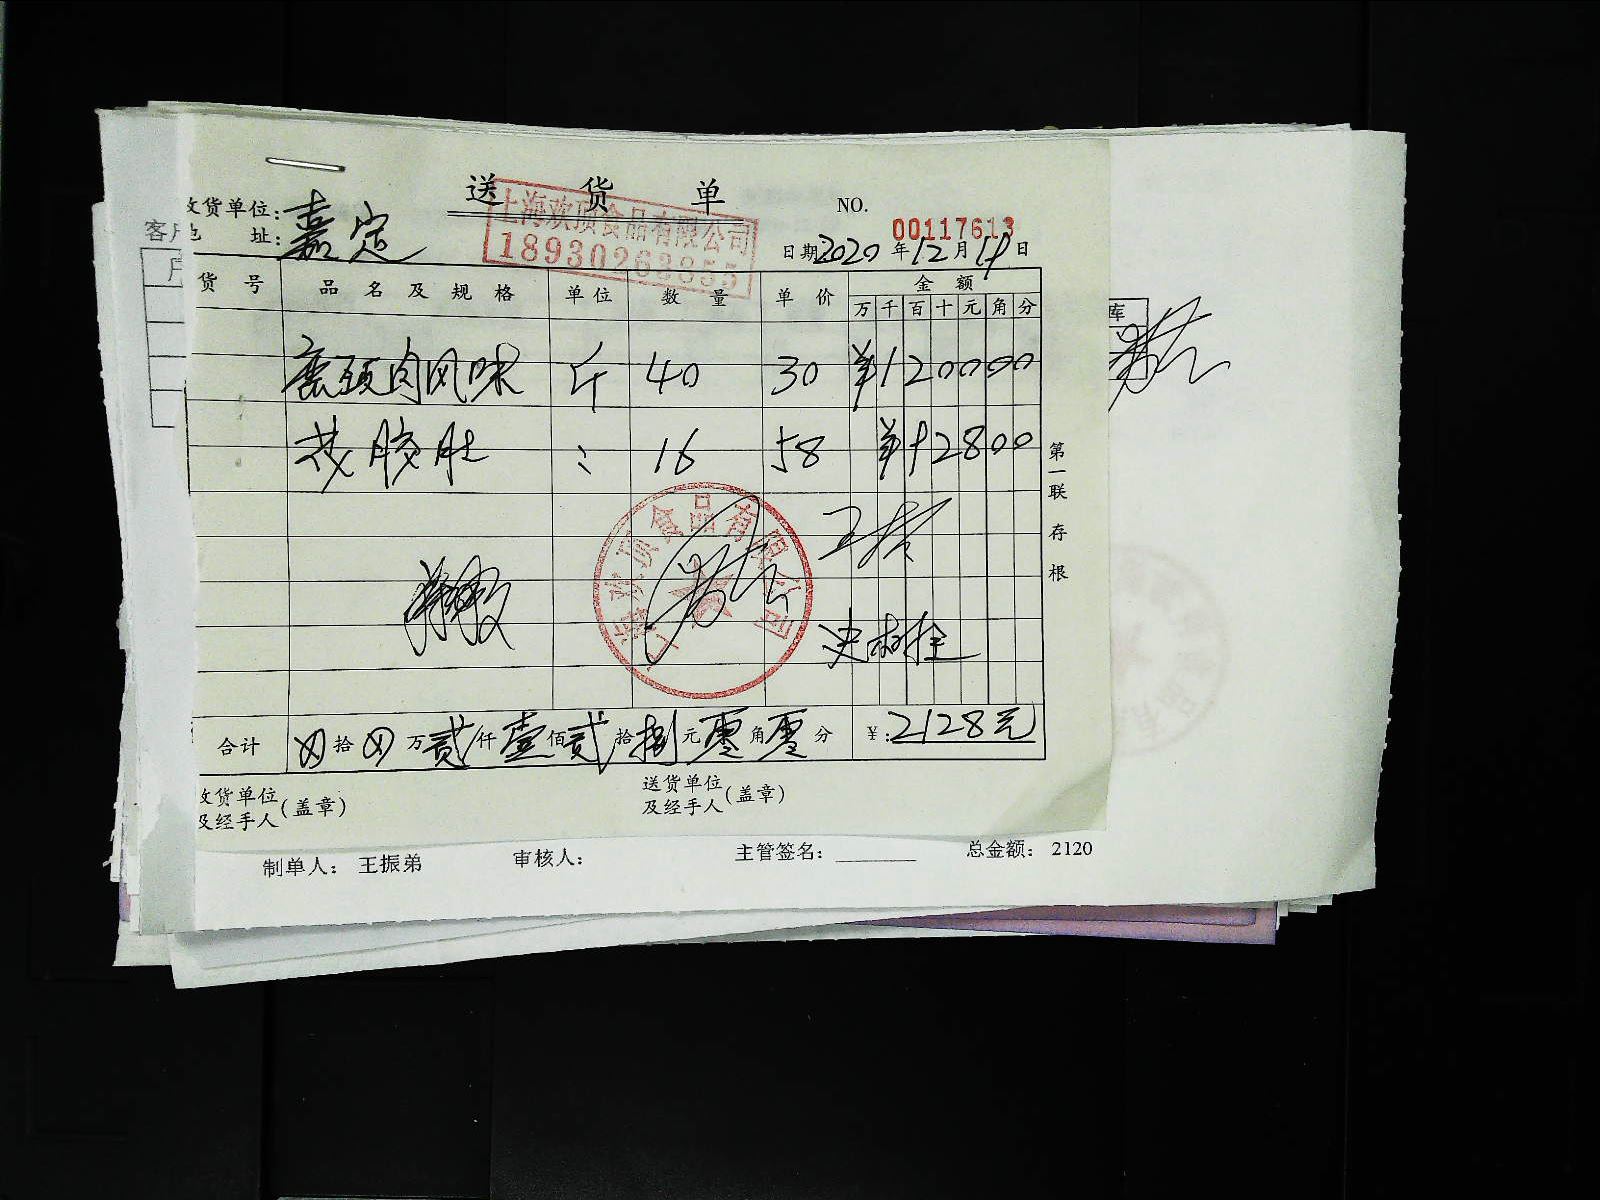 送货单
上海欢顶食品有限公司
18930263855
收货单位:
地 址: 嘉定
NO. 00117613
日期 2020 年 12 月 19 日
客户
货号 品名及规格 单位 数量 单价 金额
万 千 百 十 元 角 分
鹿颈肉风味 斤 40 30 ¥120000
胶肚 : 16 58 ¥92800
第一联 存根
库
上海欢顶食品有限公司
合计 拾 万 贰 仟 壹 佰 贰 拾 捌 元 零 角 零 分 ¥: 2128元
收货单位
及经手人 (盖章)
送货单位
及经手人 (盖章)
制单人: 王振弟 审核人: 主管签名: 总金额: 2120